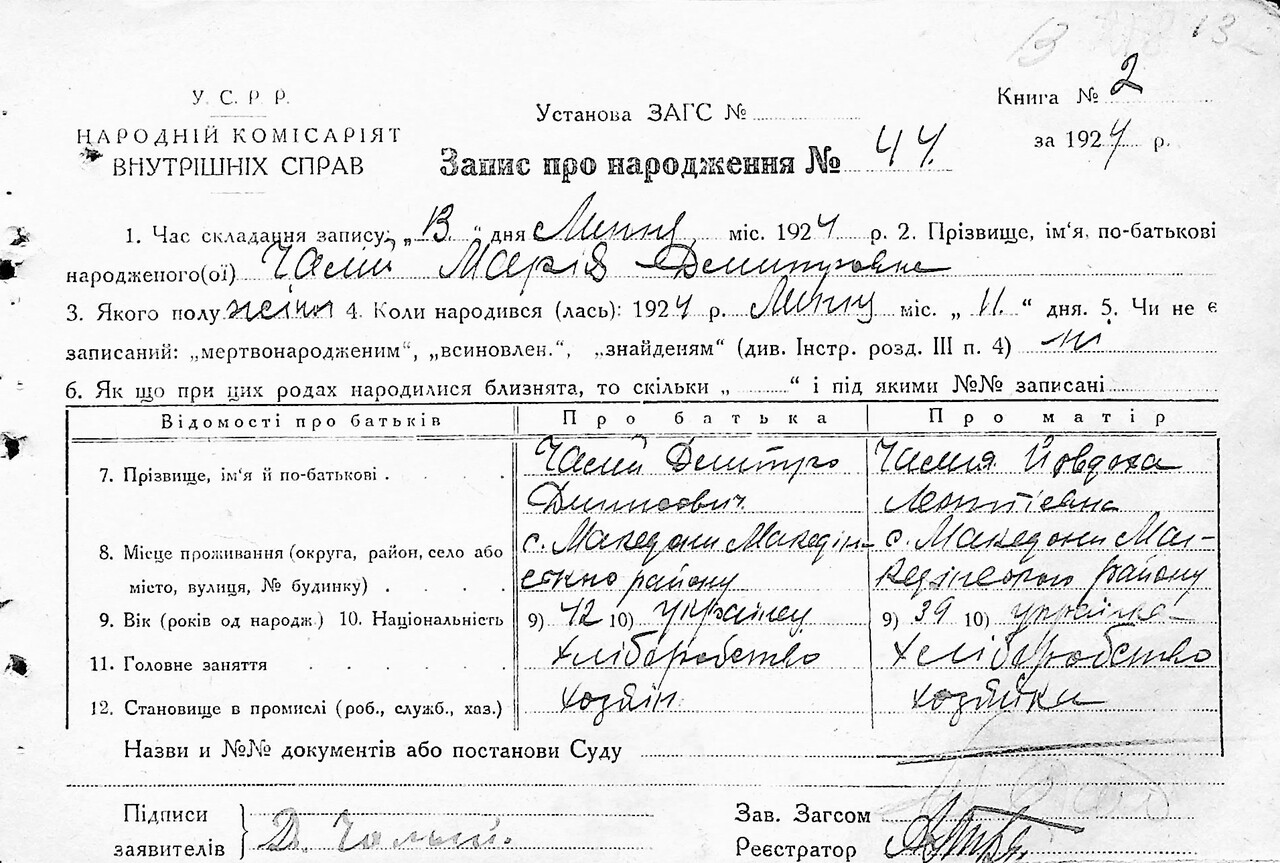 132
У. С. Р. Р.
НАРОДНІЙ КОМІСАРІЯТ
ВНУТРІШНІХ СПРАВ
Установа ЗАГС №
Книга № 2
за 1924 р.
Запис про народження № 44.
1. Час складання запису: „ 13. " дня Липня міс. 1924 р. 2. Прізвище, ім'я, по-батькові
народженого(ої) Чалий Марія Демитровна
3. Якого полу жіноч 4. Коли народився (лась): 1924 р. Липня міс. „ 11. " дня. 5. Чи не є
записаний: „мертвонародженим", „всиновлен.", „знайденям" (див. Інстр. розд. III п. 4) ні
6. Як що при цих родах народилися близнята, то скільки „ " і під якими №№ записані
Відомості про батьків Про батька Про матір
7. Прізвище, ім'я й по-батькові . . . Чалий Дмитро Чалия Йовдоха
Денисович Леонтієвна
8. Місце проживання (округа, район, село або с. Македони Македін- с. Македони Ма-
місто, вулиця, № будинку) . . . . ського району кединського району
9. Вік (років од народж.) 10. Національність 9) 42 10) українец 9) 39 10) українка
11. Головне заняття . . . . . хліборобство хліборобство
12. Становище в промислі (роб., служб., хаз.) хозяін хозяйка
Назви и №№ документів або постанови Суду
Підписи
заявителів Д. Чалый.
Зав. Загсом
Реєстратор